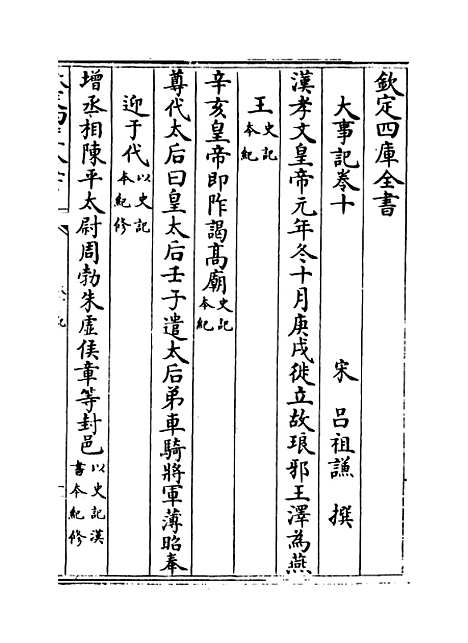 欽定四庫全書
大事記卷十
宋 呂祖謙 撰
漢孝文皇帝元年冬十月庚戌徙立故琅邪王澤為燕
王史記本紀
辛亥皇帝即阼謁髙廟史記本紀
尊代太后曰皇太后壬子遣太后弟車騎將軍薄昭奉
迎于代以史記本紀修
增丞相陳平太尉周勃朱虛侯章等封邑以史記漢書本紀修